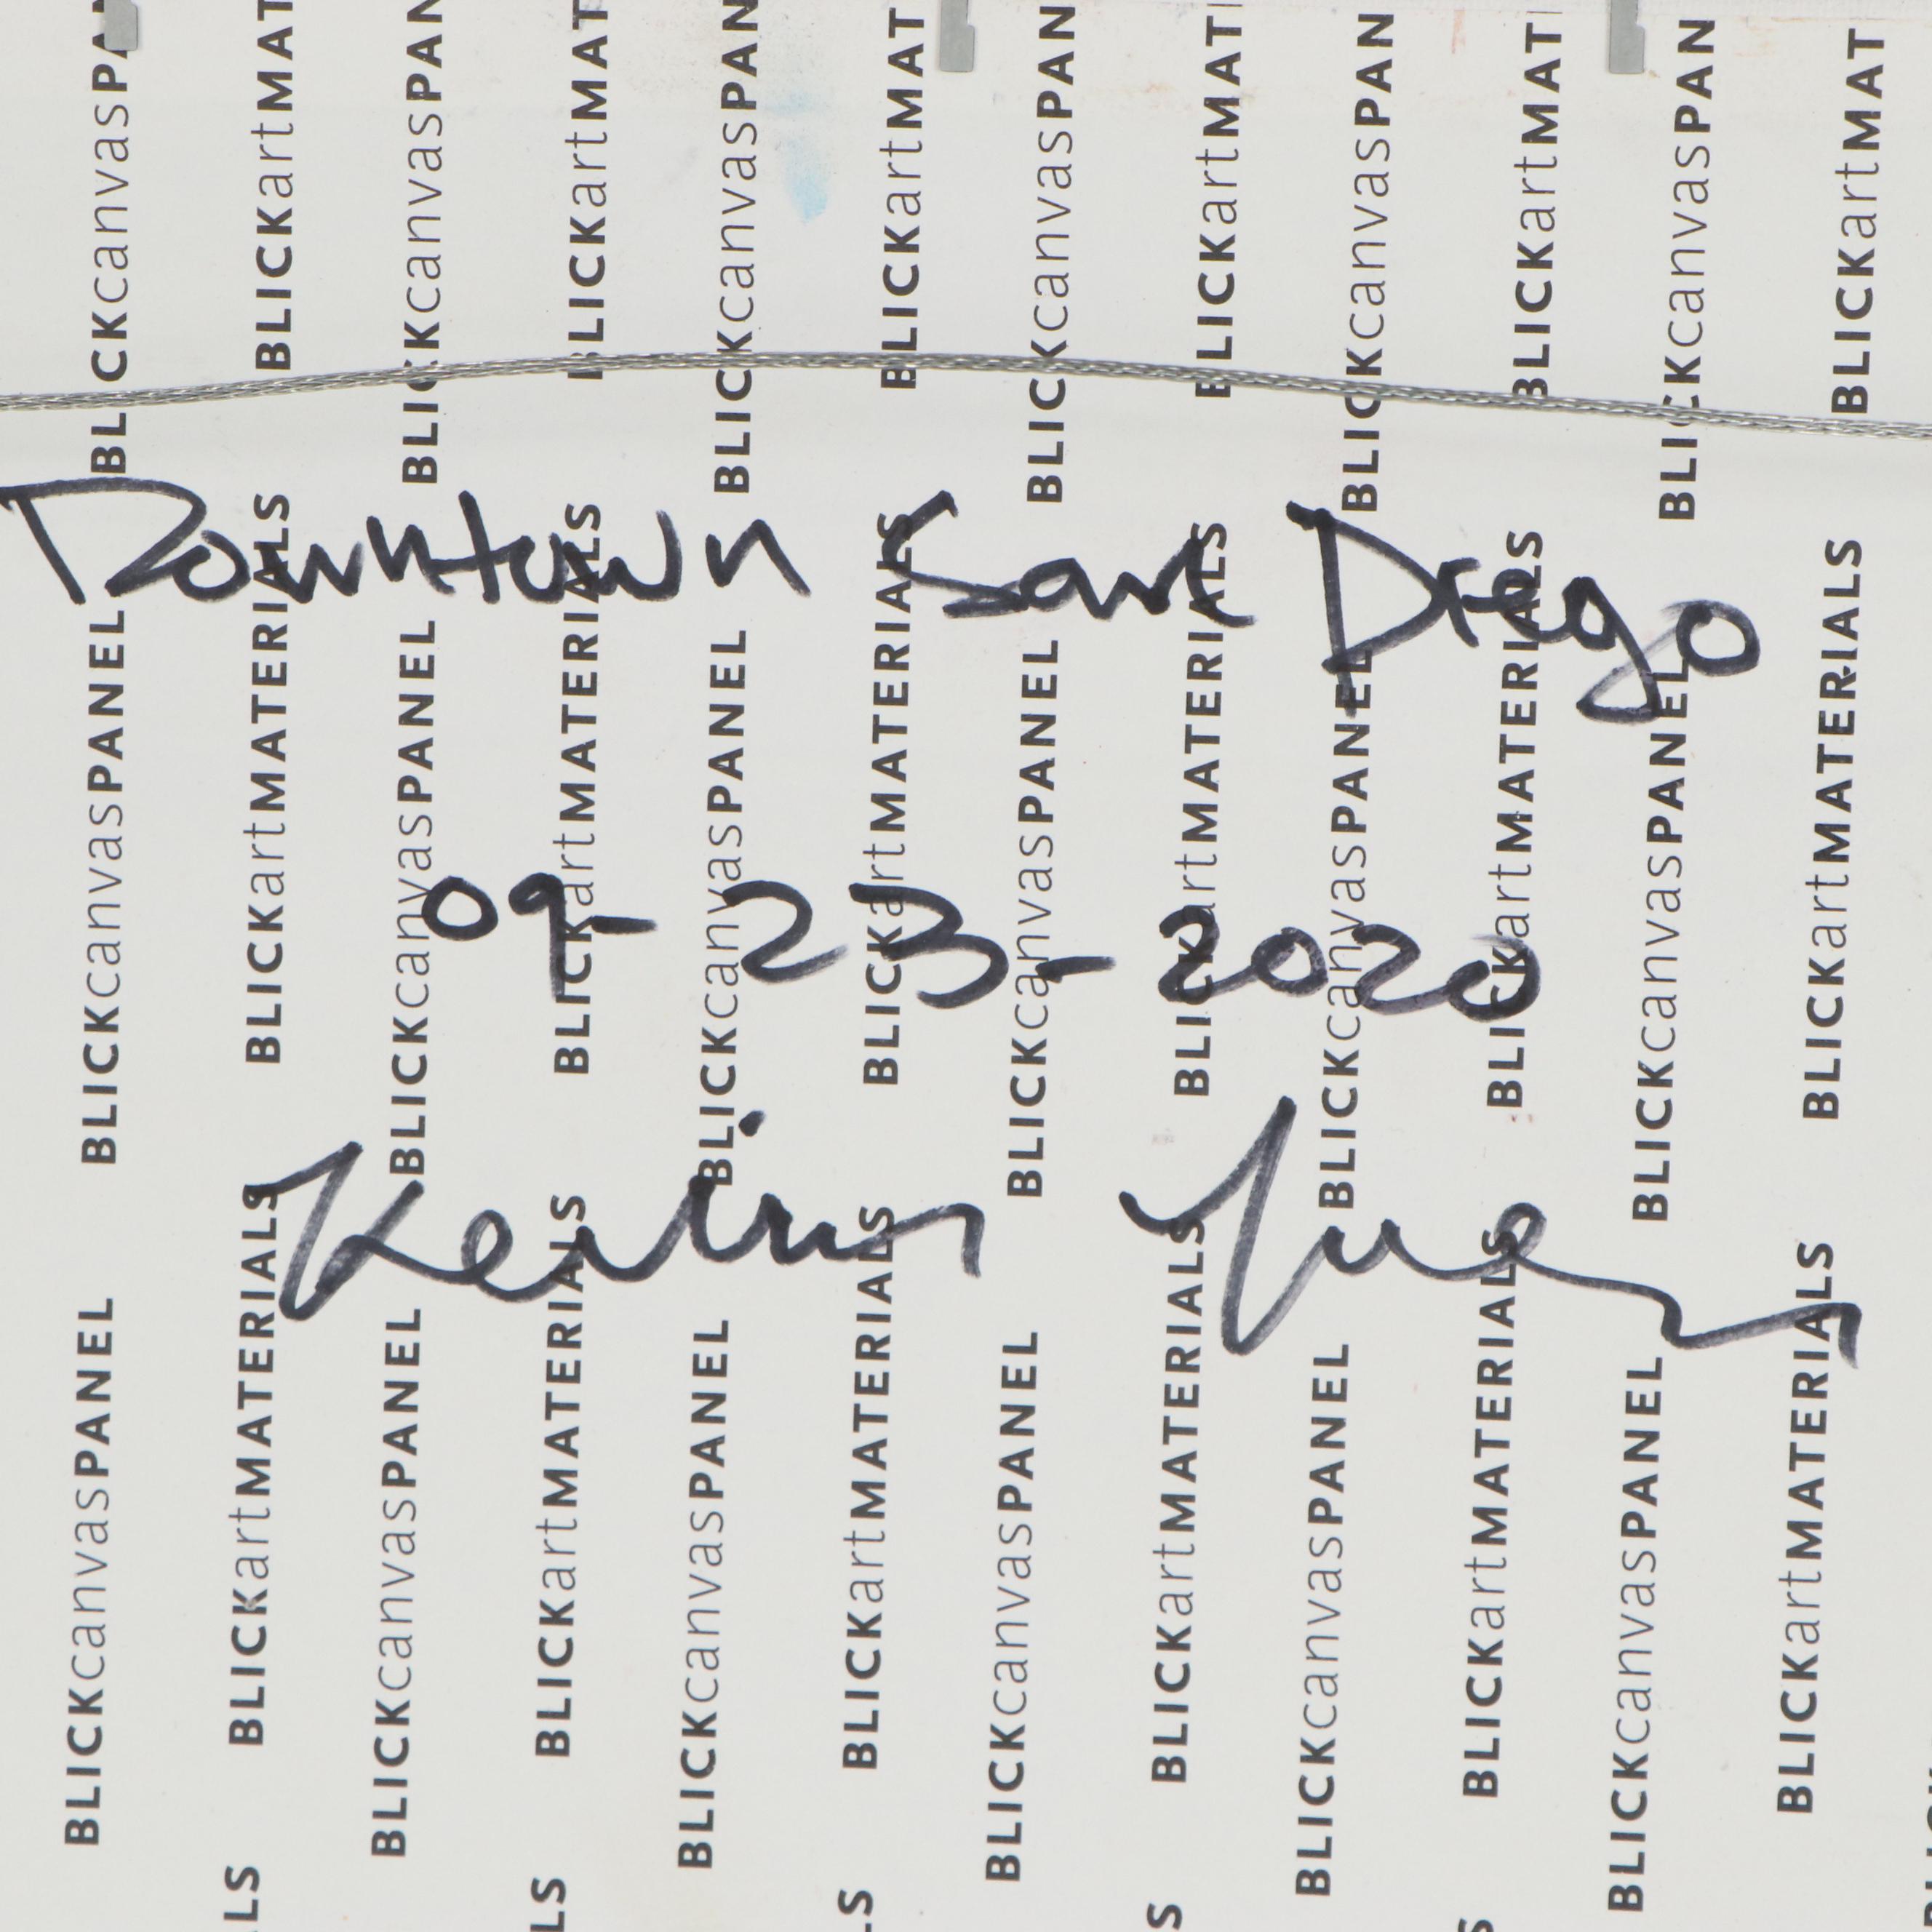 BLICKcanvasPA
BLICKartMAT
BLICKcanvasPAN
BLICKartMAT
BLICKcanvasPAN
BLICKartMAT
BLICKcanvasPAN
BLICKartMAT
BLICKcanvasPAN
BLICKartMAT
BLICKcanvasPAN
BLICKartMAT
Downtown San Diego
BLICKcanvasPANEL
BLICKartMATERIALS
BLICKcanvasPANEL
BLICKartMATERIALS
BLICKcanvasPANEL
BLICKartMATERIALS
BLICKcanvasPANEL
BLICKartMATERIALS
BLICKcanvasPANEL
BLICKartMATERIALS
BLICKcanvasPANEL
BLICKartMATERIALS
09-23-2020
Kevin
BLICKcanvasPANEL
BLICKartMATERIALS
BLICKcanvasPANEL
BLICKartMATERIALS
BLICKcanvasPANEL
BLICKartMATERIALS
BLICKcanvasPANEL
BLICKartMATERIALS
BLICKcanvasPANEL
BLICKartMATERIALS
BLICKcanvasPANEL
BLICKartMATERIALS
LS
LS
LS
S
S